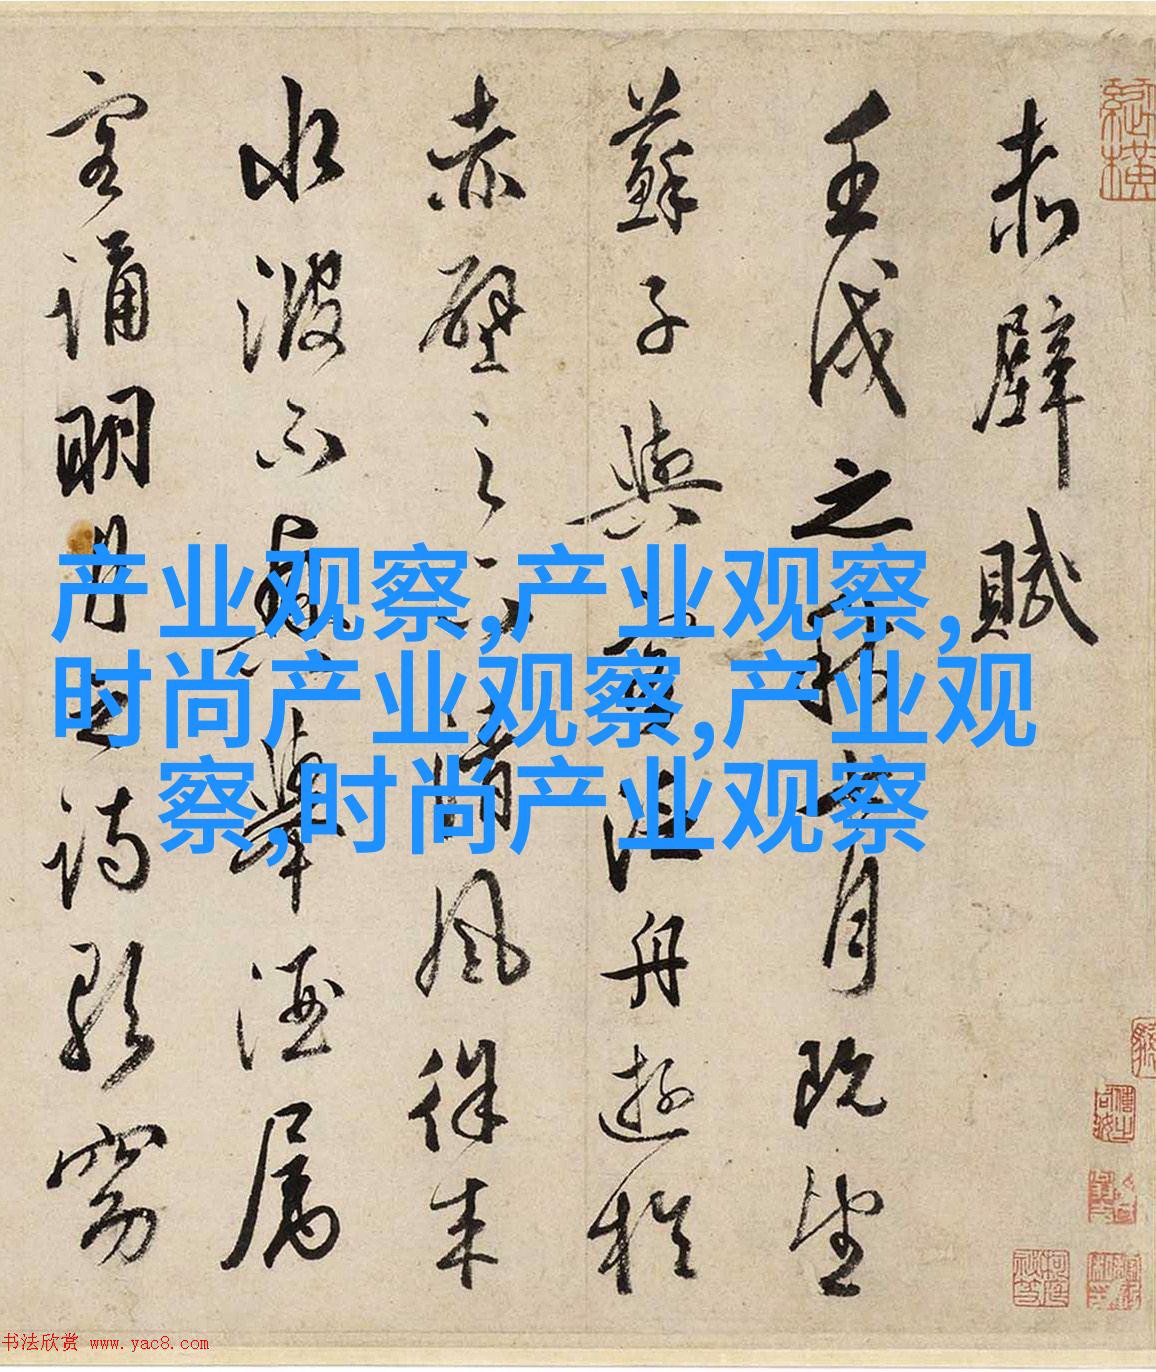 赤壁賦
壬戌之秋七月既望
蘇子與客泛舟遊於
赤壁之下清風徐來
水波不興舉酒屬
客誦明月之詩歌窈
产业观察,产业观察,
时尚产业观察,产业观
察,时尚产业观察
书法欣赏 www.yac8.com